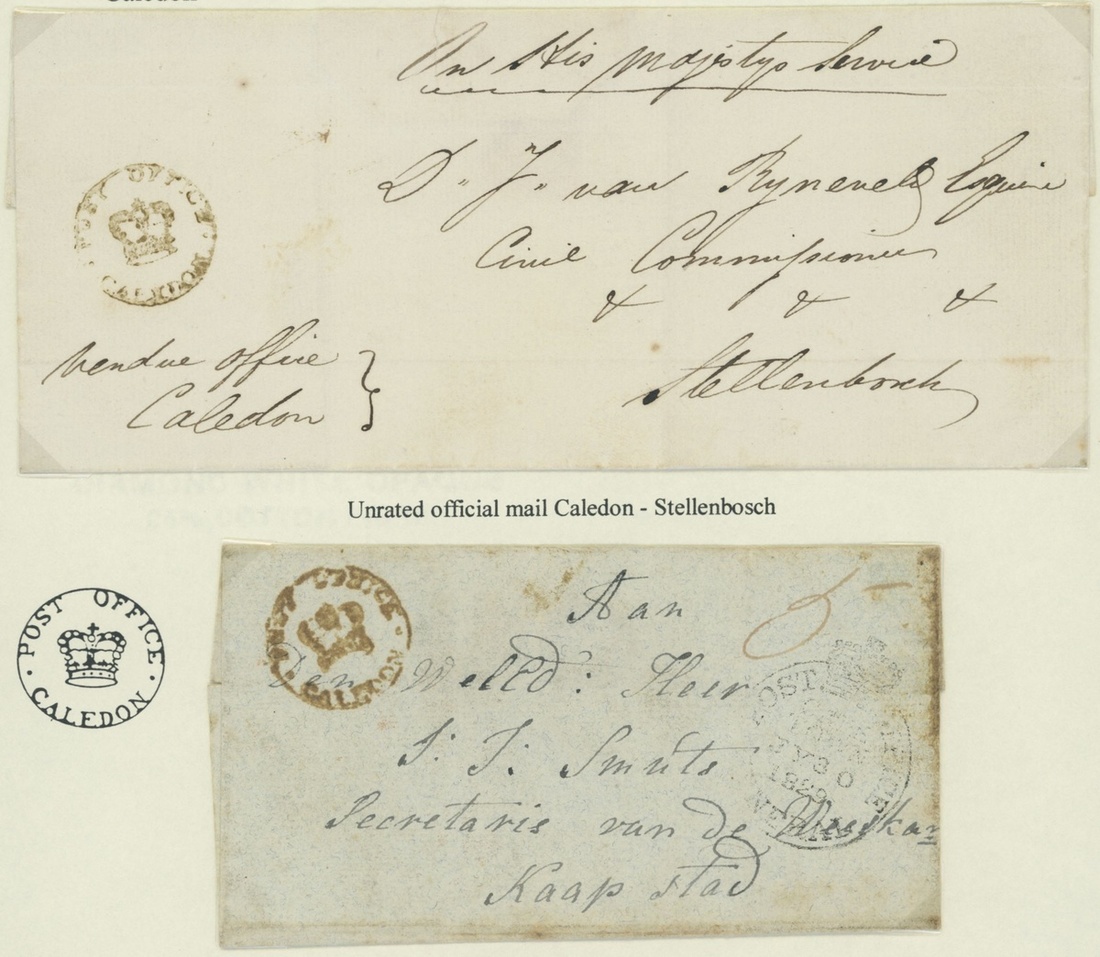 Caledon
On His Majestys Service
D. "J" van Ryneveld Esquire
Civil Commissioner
& & &
Stellenbosch
POST OFFICE
CALEDON
Vendue Office
Caledon
Unrated official mail Caledon - Stellenbosch
POST OFFICE
CALEDON
POST OFFICE
CALEDON
Aan
Den WelEd: Heer
J: J: Smuts
Secretaris van de Weeskar
Kaap stad
POST OFFICE
1829